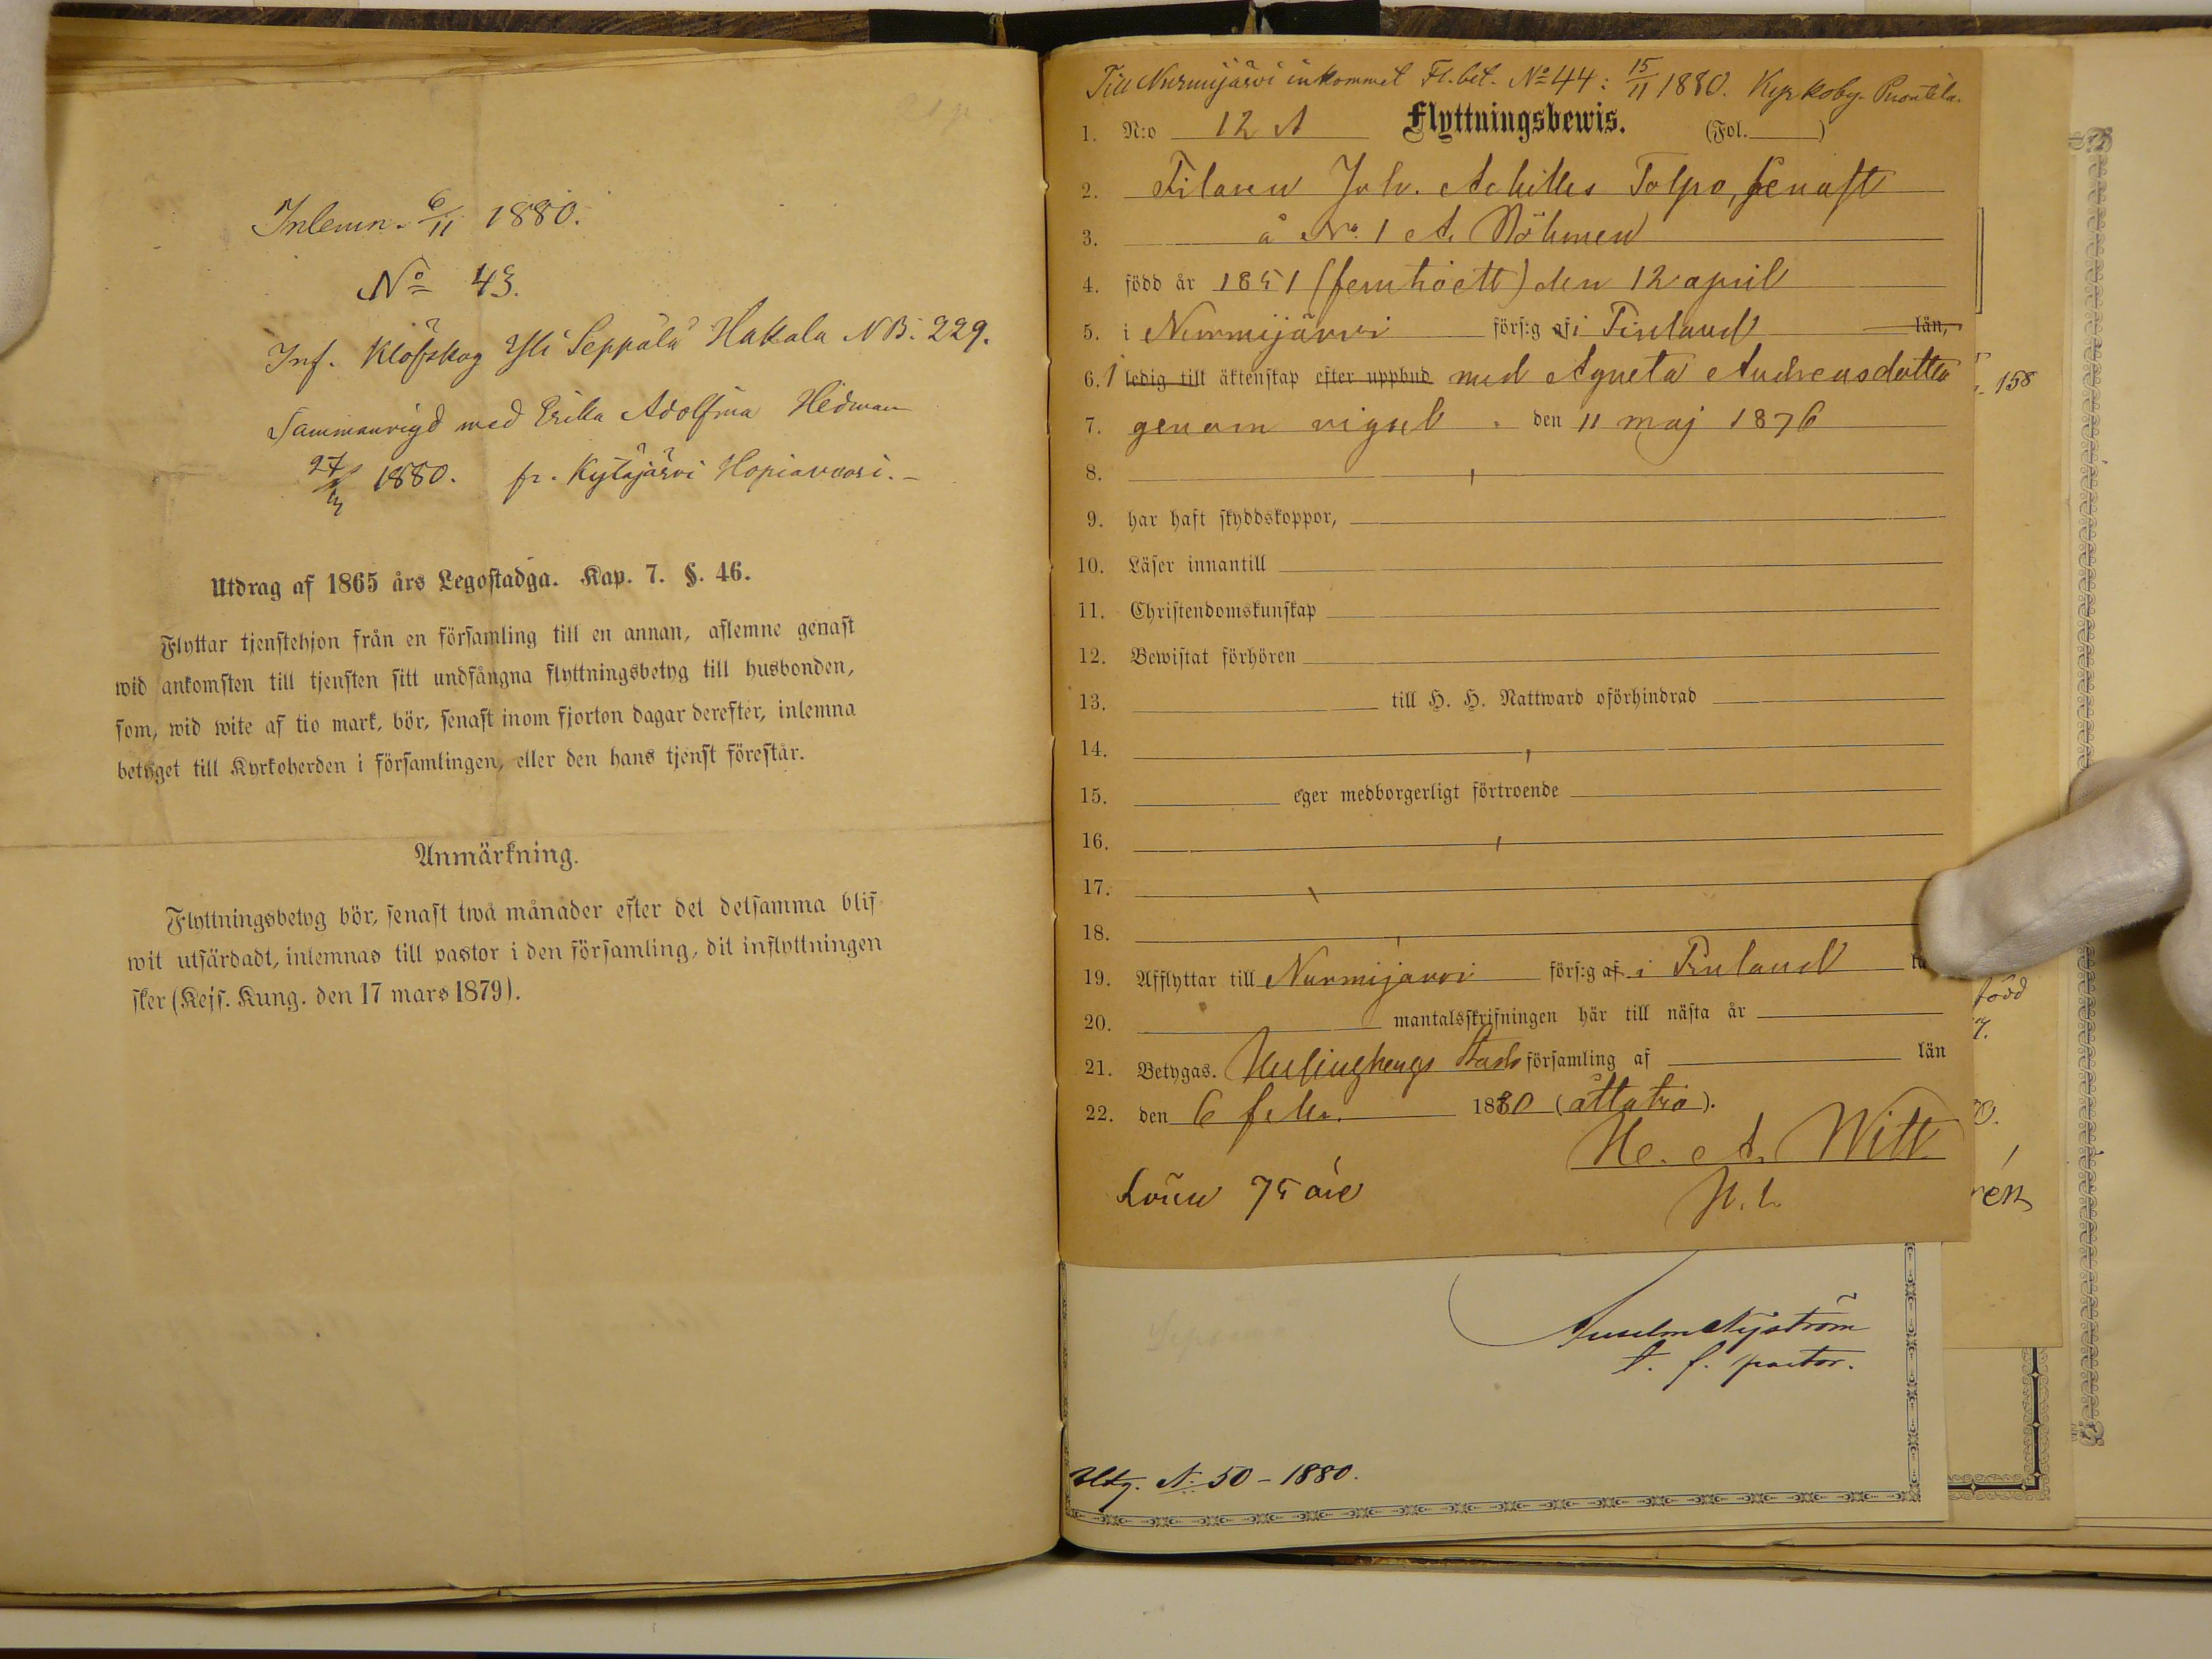 Inlemn. 6/11 1880.
No 43.
Inf. Klöfskog Yli Seppälä Hakala NB. 229.
Sammanvigd med Erika Adolfina Hedman
27/ 1880. fr. Kytäjärvi Hopiavuori.
Utdrag af 1865 års Legostadga. Kap. 7. §. 46.
Flyttar tjenstehjon från en församling till en annan, aflemne genast
wid ankomsten till tjensten sitt undfångna flyttningsbetyg till husbonden,
som, wid wite af tio mark, bör, senast inom fjorton dagar derefter, inlemna
betyget till Kyrkoherden i församlingen, eller den hans tjenst förestår.
Anmärkning.
Flyttningsbetyg bör, senast twå månader efter det detsamma blif-
wit utfärdadt, inlemnas till pastor i den församling, dit inflyttningen
sker (Kejs. Kung. den 17 mars 1879).
Till Nurmijärvi inkommet Fl. bet. No 44: 15/11 1880. Kyrkoby. Puontila.
1. N:o 12 A Flyttningsbewis. (Fol. )
2. Filaren Joh. Achilles Tolpo, senast
3. å No 1 A. Röhmen
4. född år 1851 (femtioett) den 12 april
5. i Nurmijärvi förs:g af i Finland län,
6. I ledig till äktenskap efter uppbud med Agneta Andreasdotter
7. genom vigsel den 11 maj 1876
8.
9. har haft skyddskoppor,
10. Läser innantill
11. Christendomskunskap
12. Bewistat förhören
13. till H. H. Nattward oförhindrad
14.
15. eger medborgerligt förtroende
16.
17.
18.
19. Afflyttar till Nurmijärvi förs:g af i Finland
20. mantalsskrifningen här till nästa år
21. Betygas. Helsingborgs stads församling af län
22. den 6 febr. 1880 (åttatio).
H. A. Witt
Lösen 75 öre
Anselm Nyström
t. f. pastor.
Utg. N: 50 - 1880.
158
född
7.
0.
rén